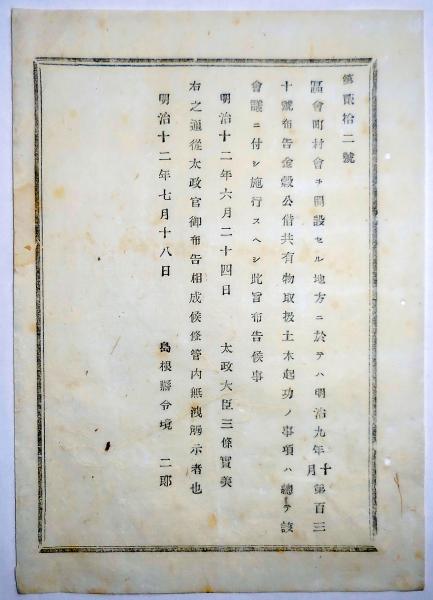 第貳拾二號
區會町村會ヲ開設セル地方ニ於テハ明治九年十月第百三
十號布告金穀公借共有物取扱土木起功ノ事項ハ總テ該
會議ニ付シ施行スヘシ此旨布告候事
明治十二年六月二十四日 太政大臣三條實美
右之通從太政官御布告相成候條管内無洩觸示者也
明治十二年七月十八日 島根縣令境二郎